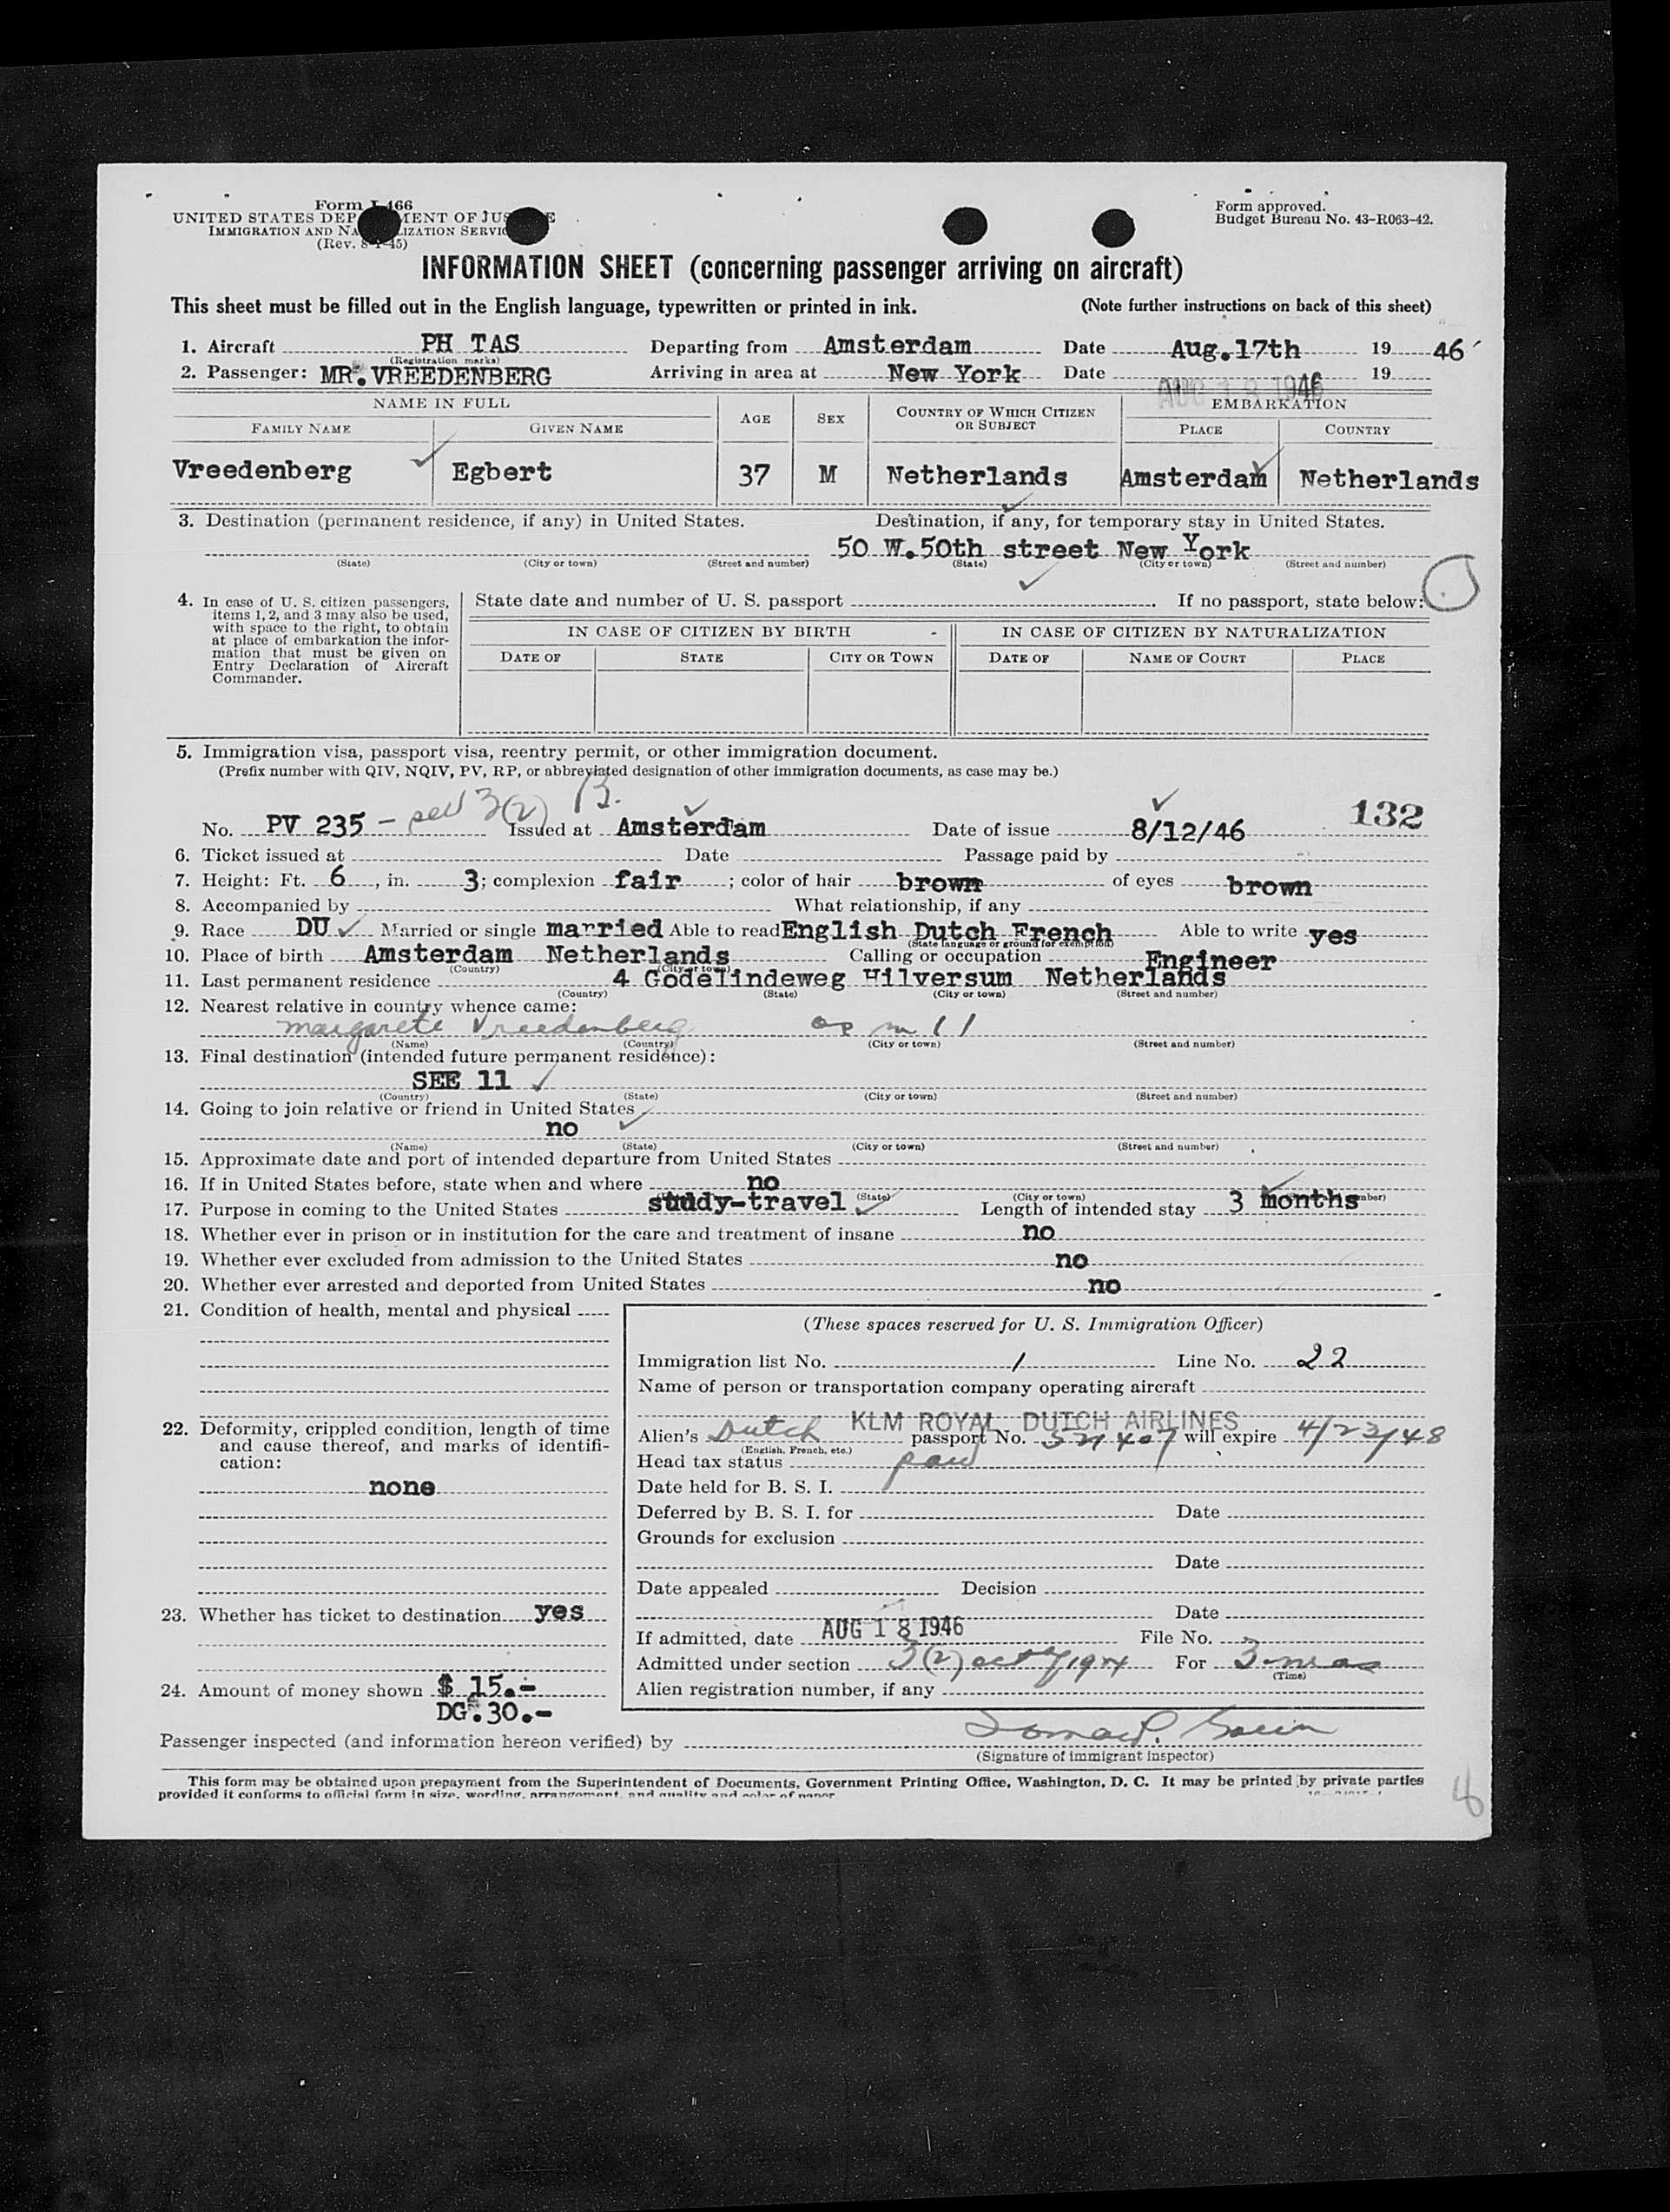 Form I-466
UNITED STATES DEPARTMENT OF JUSTICE
IMMIGRATION AND NATURALIZATION SERVICE
(Rev. 8-1-45)
Form approved.
Budget Bureau No. 43-R063-42.
INFORMATION SHEET (concerning passenger arriving on aircraft)
This sheet must be filled out in the English language, typewritten or printed in ink. (Note further instructions on back of this sheet)
1. Aircraft PH TAS Departing from Amsterdam Date Aug.17th 19 46
(Registration marks)
2. Passenger: MR. VREEDENBERG Arriving in area at New York Date AUG 18 1946 19
NAME IN FULL AGE SEX COUNTRY OF WHICH CITIZEN OR SUBJECT EMBARKATION
FAMILY NAME GIVEN NAME PLACE COUNTRY
Vreedenberg Egbert 37 M Netherlands Amsterdam Netherlands
3. Destination (permanent residence, if any) in United States. Destination, if any, for temporary stay in United States.
50 W.50th street New York
(State) (City or town) (Street and number) (State) (City or town) (Street and number)
4. In case of U. S. citizen passengers, items 1, 2, and 3 may also be used, with space to the right, to obtain at place of embarkation the information that must be given on Entry Declaration of Aircraft Commander.
State date and number of U. S. passport . If no passport, state below:
IN CASE OF CITIZEN BY BIRTH IN CASE OF CITIZEN BY NATURALIZATION
DATE OF STATE CITY OR TOWN DATE OF NAME OF COURT PLACE
5. Immigration visa, passport visa, reentry permit, or other immigration document.
(Prefix number with QIV, NQIV, PV, RP, or abbreviated designation of other immigration documents, as case may be.)
No. PV 235 - 3(2) B. Issued at Amsterdam Date of issue 8/12/46 132
6. Ticket issued at Date Passage paid by
7. Height: Ft. 6, in. 3; complexion fair; color of hair brown of eyes brown
8. Accompanied by What relationship, if any
9. Race DU Married or single married Able to read English Dutch French Able to write yes
(State language or ground for exemption)
10. Place of birth Amsterdam Netherlands Calling or occupation Engineer
(Country) (City or town)
11. Last permanent residence 4 Godelindeweg Hilversum Netherlands
(Country) (State) (City or town) (Street and number)
12. Nearest relative in country whence came:
Margarete Vreedenberg 11
(Name) (Country) (City or town) (Street and number)
13. Final destination (intended future permanent residence):
SEE 11
(Country) (State) (City or town) (Street and number)
14. Going to join relative or friend in United States
no
(Name) (State) (City or town) (Street and number)
15. Approximate date and port of intended departure from United States
16. If in United States before, state when and where no
(State) (City or town) (Street and number)
17. Purpose in coming to the United States study-travel Length of intended stay 3 months
18. Whether ever in prison or in institution for the care and treatment of insane no
19. Whether ever excluded from admission to the United States no
20. Whether ever arrested and deported from United States no
21. Condition of health, mental and physical
22. Deformity, crippled condition, length of time and cause thereof, and marks of identification:
none
23. Whether has ticket to destination yes
24. Amount of money shown $ 15.-
DG.30.-
(These spaces reserved for U. S. Immigration Officer)
Immigration list No. 1 Line No. 22
Name of person or transportation company operating aircraft
KLM ROYAL DUTCH AIRLINES
Alien's Dutch passport No. will expire 4/23/48
(English, French, etc.)
Head tax status
Date held for B. S. I.
Deferred by B. S. I. for Date
Grounds for exclusion
Date
Date appealed Decision
Date
If admitted, date AUG 18 1946 File No.
Admitted under section 3(2) act of 1924 For 3 mos
(Time)
Alien registration number, if any
Passenger inspected (and information hereon verified) by
(Signature of immigrant inspector)
This form may be obtained upon prepayment from the Superintendent of Documents, Government Printing Office, Washington, D. C. It may be printed by private parties
provided it conforms to official form in size, wording, arrangement, and quality and color of paper.